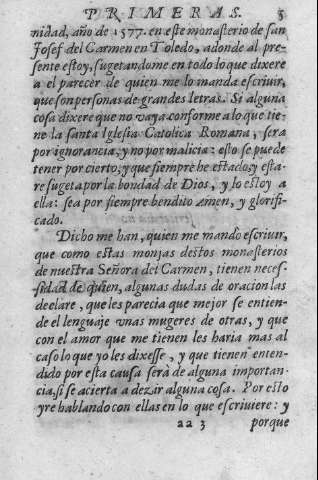 PRIMERAS. 5
nidad, año de 1577. en este monasterio de san
Josef del Carmen en Toledo, adonde al pre-
sente estoy, sugetandome en todo lo que dixere
a el parecer de quien me lo manda escriuir,
que son personas de grandes letras. Si alguna
cosa dixere que no vaya conforme a lo que tie-
ne la santa Iglesia Catolica Romana, sera
por ignorancia, y no por malicia: esto se puede
tener por cierto; y que siempre he estado, y esta-
re sugeta por la bondad de Dios, y lo estoy a
ella: sea por siempre bendito amen, y glorifi-
cado.
Dicho me han, quien me mando escriuir,
que como estas monjas destos monasterios
de nuestra Señora del Carmen, tienen neces-
sidad de quien, algunas dudas de oracion las
declare, que les parecia que mejor se entien-
de el lenguaje vnas mugeres de otras, y que
con el amor que me tienen les haria mas al
caso lo que yo les dixesse, y que tienen enten-
dido por esta causa será de alguna importan-
cia, si se acierta a dezir alguna cosa. Por esto
yre hablando con ellas en lo que escriuiere: y
aa 3 porque